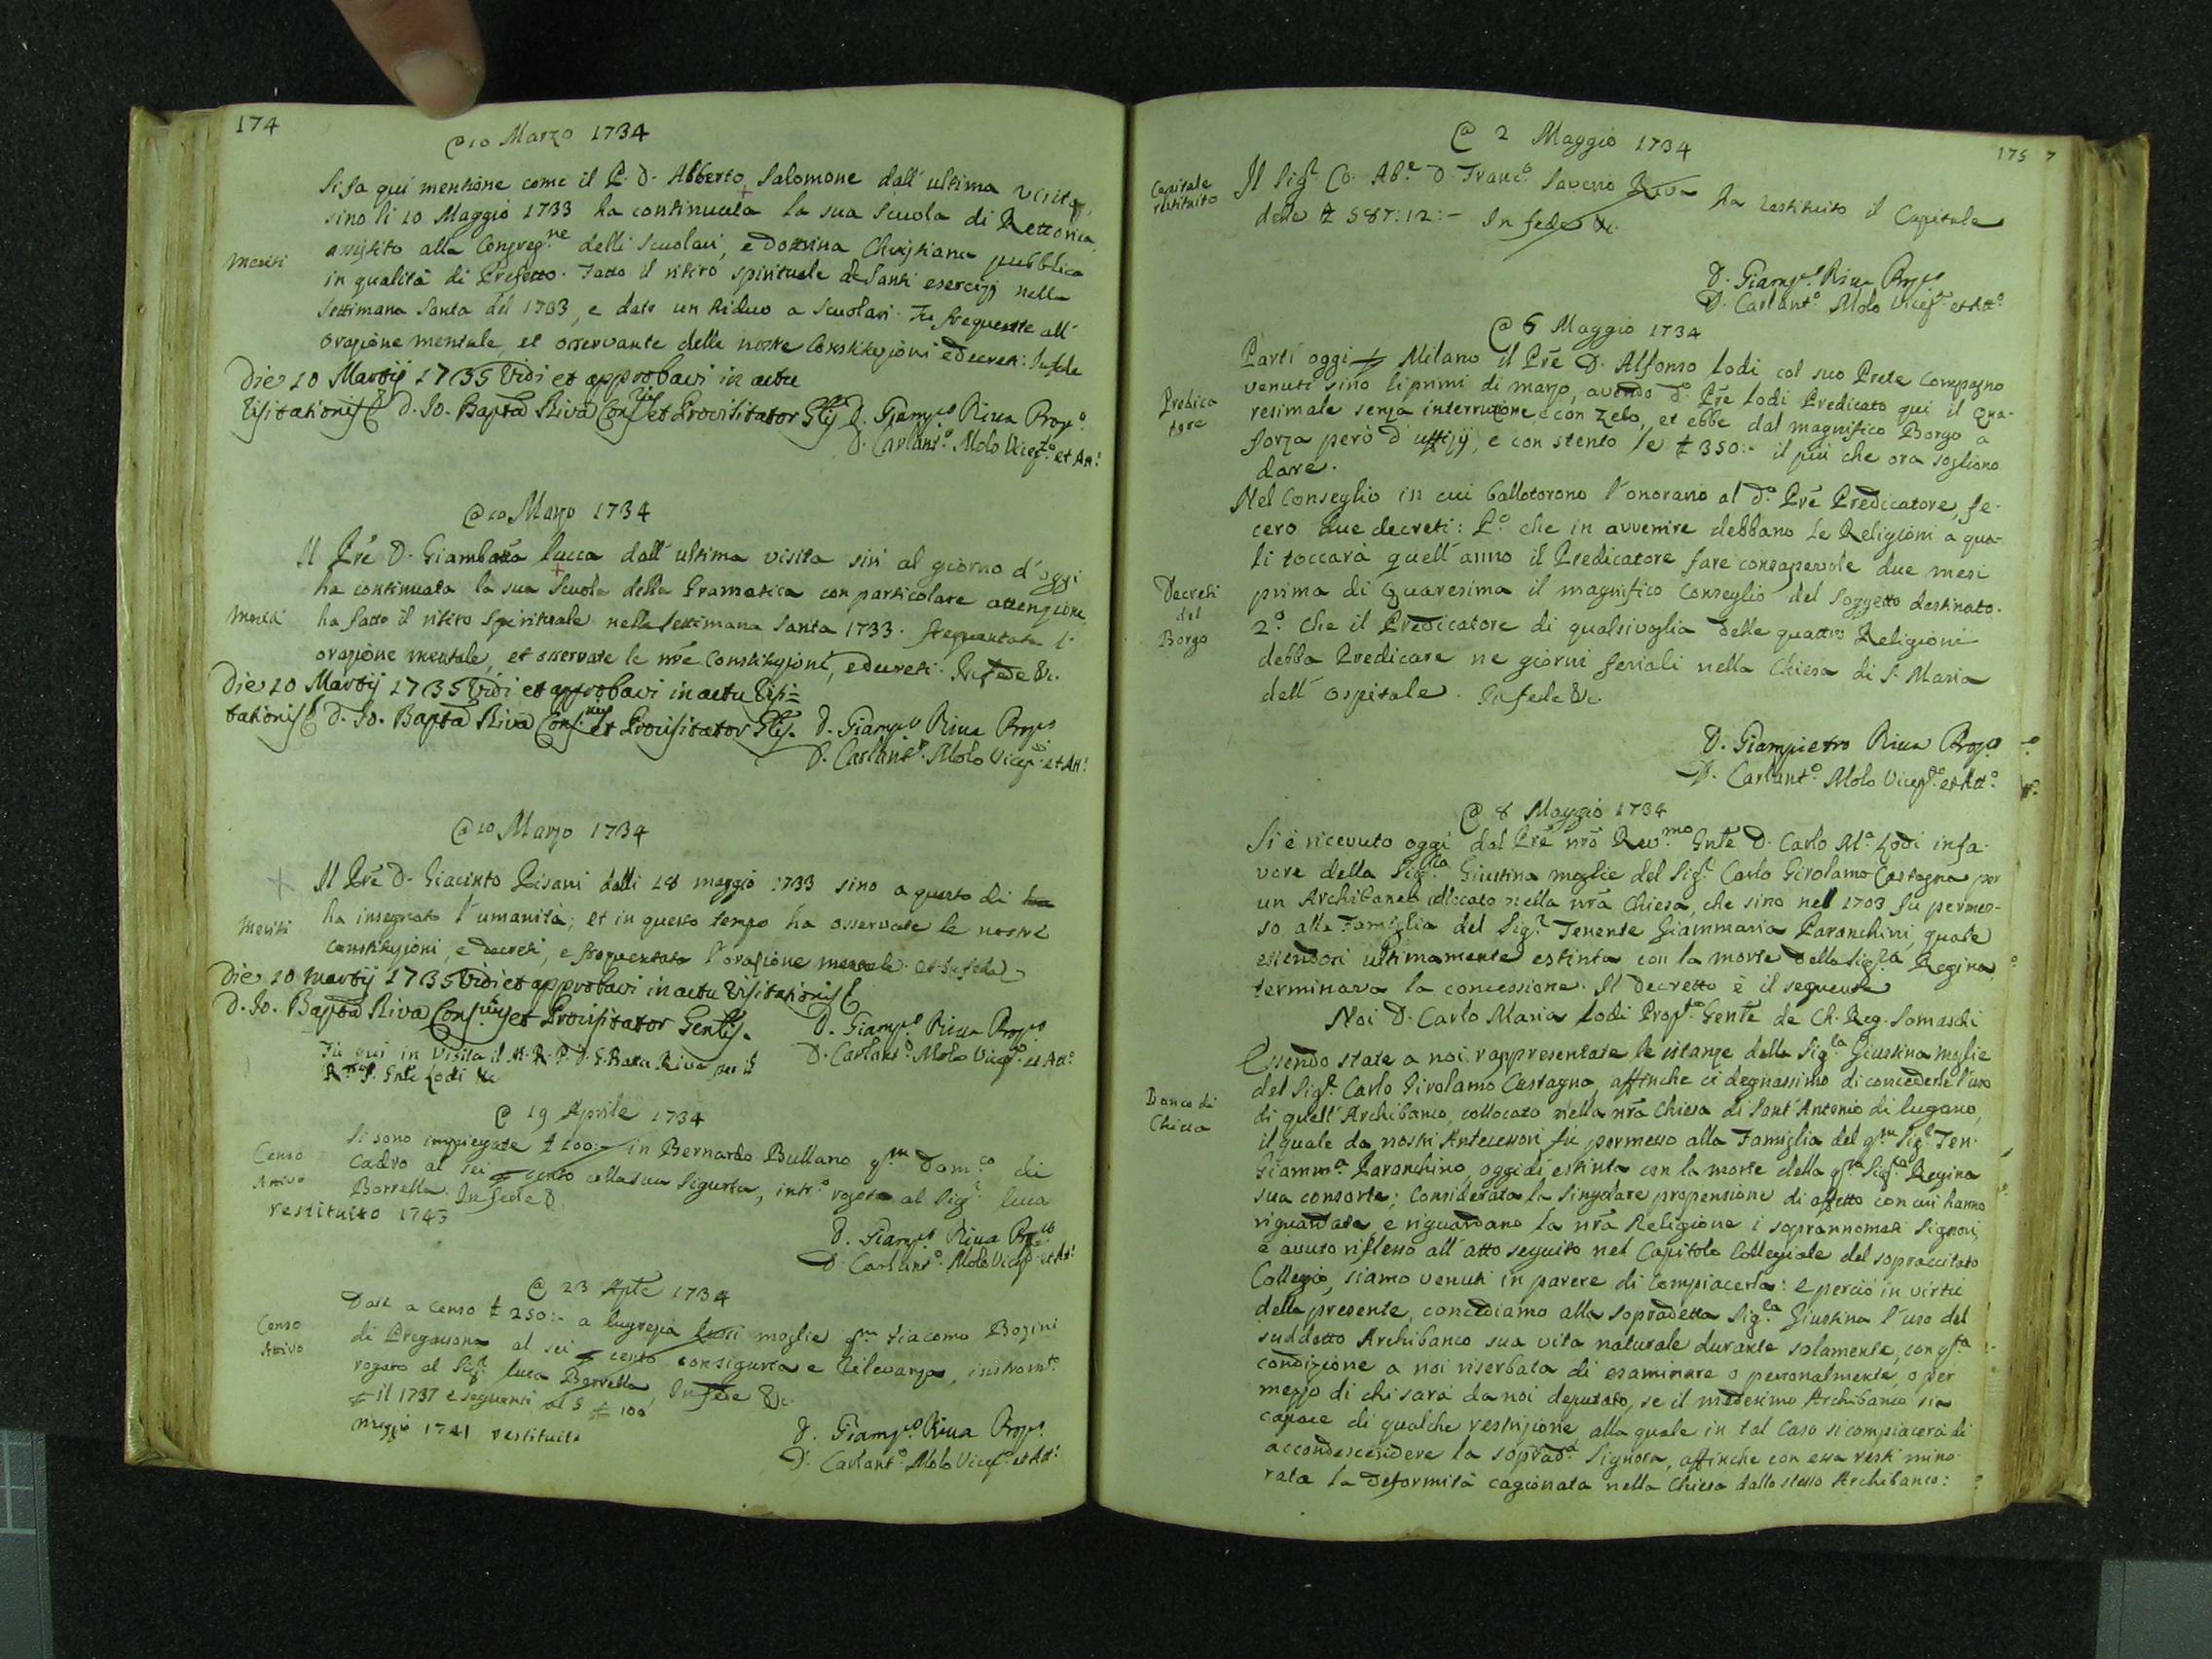 174
@ 10 Marzo 1734
Si fa qui mentione come il P. D. Alberto Salomone dall' ultima visita,
sino li 10 Maggio 1733 ha continuata la sua Scuola di Rettorica,
assistito alla Congreg.ne delli Scuolari, e dottrina Christiana pubblica
Meriti
in qualità di Prefetto. Fatto il ritiro spirituale de Santi esercizj nella
Settimana Santa del 1733, e dato un triduo a Scuolari. Fu frequente all'
orazione mentale, et osservante delle nostre Constituzioni e decreti: In fede
Die 10 Martij 1735 Vidi et approbavi in actu
Visitationis D. Jo. Bapta Riva Cons.rius et Provisitator Glis
D. Giamp.o Riva Prop.o
D. Carlant.o Molo Vicep.to et Att.o
@ 10 Marzo 1734
Il Pre D. Giambatta Lucca dall' ultima visita sin al giorno d' oggi
ha continuata la sua Scuola della Gramatica con particolare attenzione
Meriti
ha fatto il ritiro Spirituale nella Settimana Santa 1733. frequentata l'
orazione mentale, et osservate le nre Constituzioni, e decreti. In fede &c.
Die 10 Martij 1735 Vidi et approbavi in actu Visi=
tationis D. Jo. Bapta Riva Cons.rius et Provisitator Glis.
D. Giamp.o Riva Prop.o
D. Carlant.o Molo Vicep.o et Att.o
@ 10 Marzo 1734
Il Pre D. Giacinto Pisani dalli 28 maggio 1733 sino a questo di ha
Meriti
ha insegnato l' umanità; et in questo tempo ha osservate le nostre
constituzioni, e decreti, e frequentata l' orazione mentale. et In fede
Die 10 martij 1735 Vidi et approbavi in actu Visitationis
D. Jo. Bapta Riva Cons.rius et Provisitator Gentis.
D. Giamp.o Riva Prop.o
D. Carlant.o Molo Vicep.o et Att.o
Fu qui in Visita il M. R. P. D. G. Batta Riva per il
R.mo P. Gnle Lodi &c
@ 19 Aprile 1734
Censo
Attivo
Si sono impiegate £ 200:- in Bernardo Bullano qm Dom.co di
Cadro al sei p cento colla sua Sigurta, intr.o rogato al Sig.r Luca
Borrella. In fede &
restituito 1743
D. Giamp.o Riva Prop.o
D. Carlant.o Molo Vicep.o et Att.o
@ 23 Aple 1734
Censo
Attivo
Date a censo £ 250:- a Lugrezia moglie qm Giacomo Bozini
di Pregassona al sei p cento con sigurta e rilevanza, instrom.to
rogato al Sig.r Luca Borrella In fede &c.
p il 1737 e seguenti al 5 p 100
Maggio 1741 restituita
D. Giamp.o Riva Prop.o
D. Carlant.o Molo Vicep.o et Att.o
175 7
@ 2 Maggio 1734
Capitale
restituito
Il Sig.r Co. Ab.e D. Franc.o Saverio Riva ha restituito il Capitale
delle £ 587:12:- In fede &c.
D. Giamp.o Riva Prop.o
D. Carlant.o Molo Vicep.o et Att.o
@ 6 Maggio 1734
Partì oggi p Milano il Pre D. Alfonso Lodi col suo Prete compagno
venuti sino li primi di marzo, avendo d.o Pre Lodi Predicato qui il Qua-
Predica
tore
resimale senza interruzione e con zelo, et ebbe dal magnifico Borgo a
forza però d' uffizij, e con stento le £ 350:- il più che ora sogliono
dare.
Nel Conseglio in cui ballotorono l' onorario al d.o Pre Predicatore, fe-
cero due decreti: P.o che in avvenire debbano le Religioni a qua-
li toccarà quell' anno il Predicatore fare consapevole due mesi
Decreti
del
Borgo
prima di Quaresima il magnifico Conseglio del Soggetto destinato.
2.o Che il Predicatore di qualsivoglia delle quattro Religioni
debba Predicare ne giorni feriali nella Chiesa di S. Maria
dell' Ospitale. In fede &c.
D. Giampietro Riva Prop.o
D. Carlant.o Molo Vicep.o et Att.o
@ 8 Maggio 1734
Si è ricevuto oggi dal Pre nro Rev.mo Gnle D. Carlo M.a Lodi in fa-
vore della Sig.ra Giustina moglie del Sig.r Carlo Girolamo Castagna per
un Archibanco collocato nella nra Chiesa, che sino nel 1703 fu permes-
so alla Famiglia del Sig.r Tenente Giammaria Paranchini, quale
essendosi ultimamente estinta con la morte della Sig.ra Regina
terminava la concessione. Il decretto è il seguente
Noi D. Carlo Maria Lodi Prop.to Gente de Ch. Reg. Somaschi
Essendo state a noi rappresentate le istanze della Sig.ra Giustina moglie
del Sig.r Carlo Girolamo Castagna, affinche ci degnassimo di concederle l' uso
Banco di
Chiesa
di quell' Archibanco, collocato nella nra Chiesa di Sant' Antonio di Lugano,
il quale da nostri Antecessori fu permesso alla Famiglia del qm Sig.r Ten.
Giamm.a Paranchino, oggidì estinta con la morte della qm Sig.ra Regina
sua consorte; Considerata la singolare propensione di affetto con cui hanno
riguardata e riguardano la nra Religione i soprannomati Signori,
e avuto riflesso all' atto seguito nel Capitolo Collegiale del sopraccitato
Collegio, siamo venuti in parere di compiacerla: e perciò in virtù
della presente, concediamo alla sopradetta Sig.ra Giustina l' uso del
suddetto Archibanco sua vita naturale durante solamente, con qsta
condizione a noi riserbata di esaminare o personalmente, o per
mezzo di chi sarà da noi deputato, se il medesimo Archibanco sia
capace di qualche restrizione alla quale in tal caso si compiacerà di
accondescendere la soprad.a Signora, affinche con essa resti mino-
rata la deformità cagionata nella Chiesa dallo stesso Archibanco: